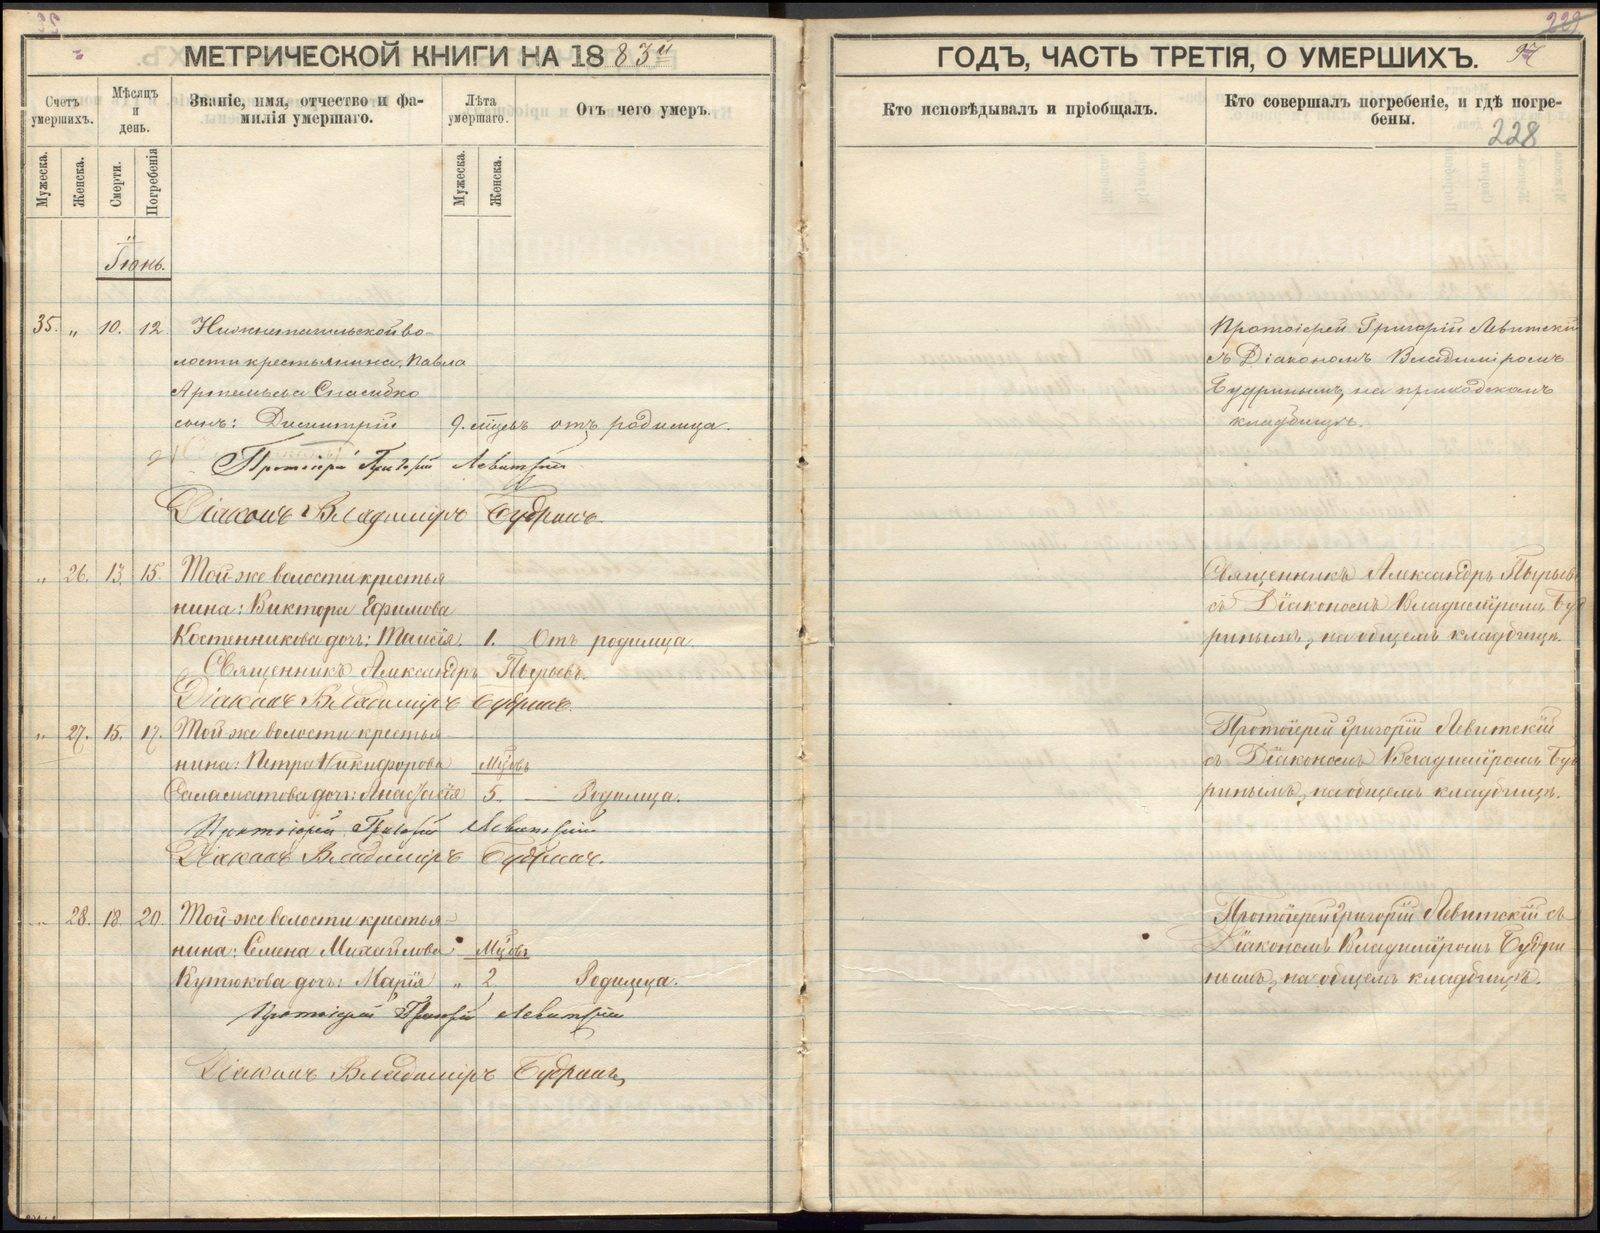 МЕТРИЧЕСКОЙ КНИГИ НА 1883й
ГОДЪ, ЧАСТЬ ТРЕТІЯ, О УМЕРШИХЪ.
97
229
228
Счетъ умершихъ.
Мѣсяцъ и день.
Званіе, имя, отчество и фамилія умершаго.
Лѣта умершаго.
Отъ чего умеръ.
Кто исповѣдывалъ и пріобщалъ.
Кто совершалъ погребеніе, и гдѣ погребены.
Мужеска.
Женска.
Смерти.
Погребенія
Мужеска.
Женска.
Іюнь.
35. „ 10. 12. Нижнетагильской во-
лости крестьянина, Павла
Артемьева Спасибко
сынъ: Димитрій 9. мцвъ отъ родимца.
Протоіерей Григорій Левитскій
съ Діакономъ Владиміромъ
Будринымъ, на приходскомъ
кладбищѣ.
Протоіерей Григорій Левитскій
Діаконъ Владиміръ Будринъ.
„ 26. 13. 15. Той-же волости крестья
нина: Виктора Ефимова
Костенникова дочь: Таисія. 1. Отъ родимца.
Священникъ Александръ Пырьевъ
съ Діакономъ Владиміромъ Буд
ринымъ, на общемъ кладбищѣ.
Священникъ Александръ Пырьевъ.
Діаконъ Владиміръ Будринъ.
„ 27. 15. 17. Той-же волости крестья
нина: Петра Никифорова Мцвъ
Саламатова дочь: Анастасія 5. — Родимца.
Протоіерей Григорій Левитскій
съ Діакономъ Владиміромъ Буд
ринымъ, на общемъ кладбищѣ.
Протоіерей Григорій Левитскій
Діаконъ Владиміръ Будринъ.
„ 28. 18. 20. Той-же волости крестья-
нина: Семена Михайлова Мцвъ
Кутюкова дочь: Марія „ 2 Родимца.
Протоіерей Григорій Левитскій съ
Діакономъ Владиміромъ Будри
нымъ, на общемъ кладбищѣ.
Протоіерей Григорій Левитскій
Діаконъ Владиміръ Будринъ